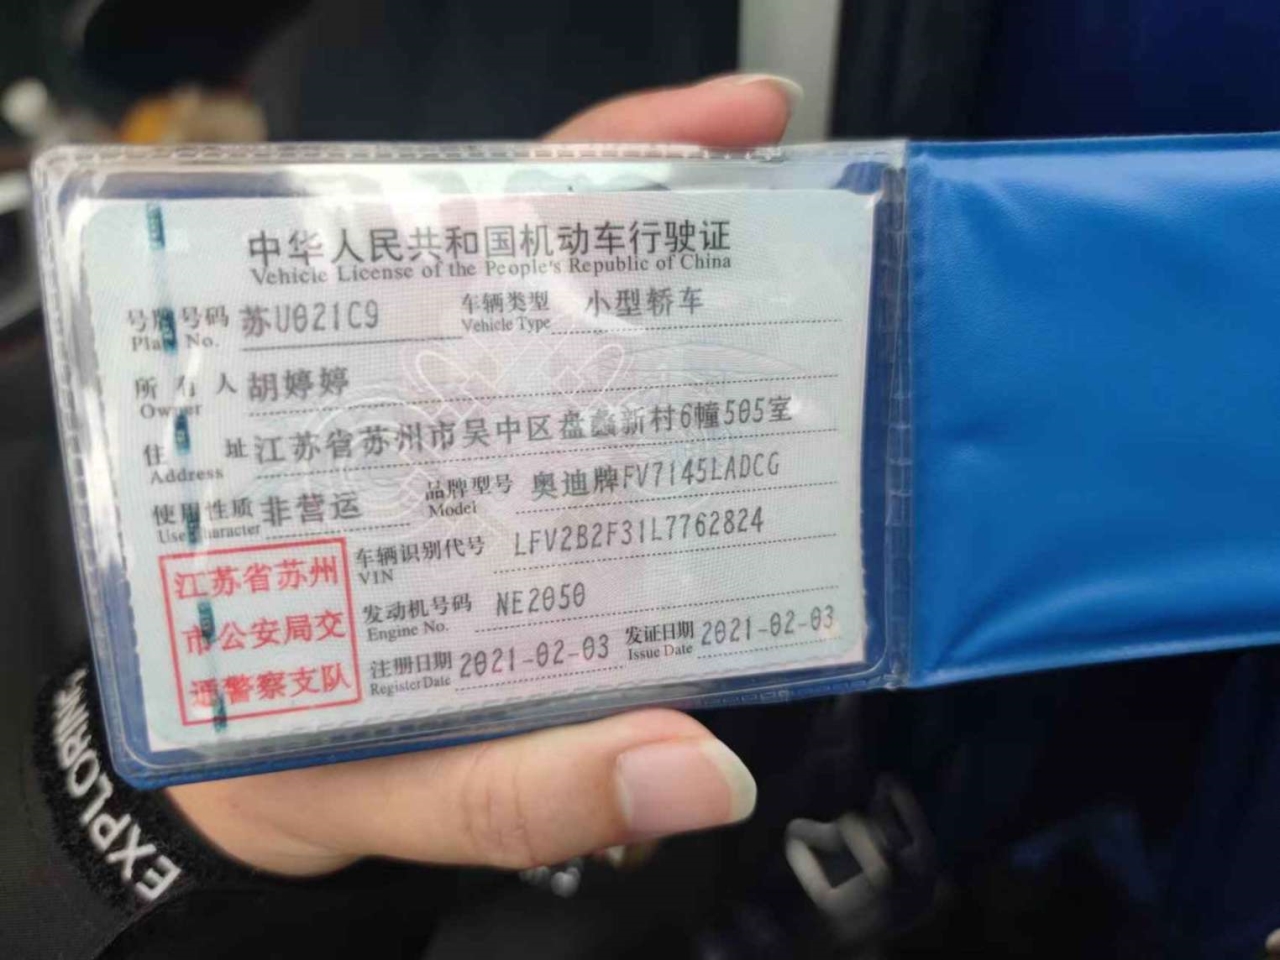 中华人民共和国机动车行驶证
Vehicle License of the People's Republic of China
号牌号码 苏U021C9 车辆类型 小型轿车
Plate No. Vehicle Type
所有人 胡婷婷
Owner
住址 江苏省苏州市吴中区盘蠡新村6幢505室
Address
使用性质 非营运 品牌型号 奥迪牌FV7145LADCG
Use Character Model
车辆识别代号 LFV2B2F31L7762824
VIN
发动机号码 NE2050
Engine No.
注册日期 2021-02-03 发证日期 2021-02-03
Register Date Issue Date
江苏省苏州
市公安局交
通警察支队
EXPLORING